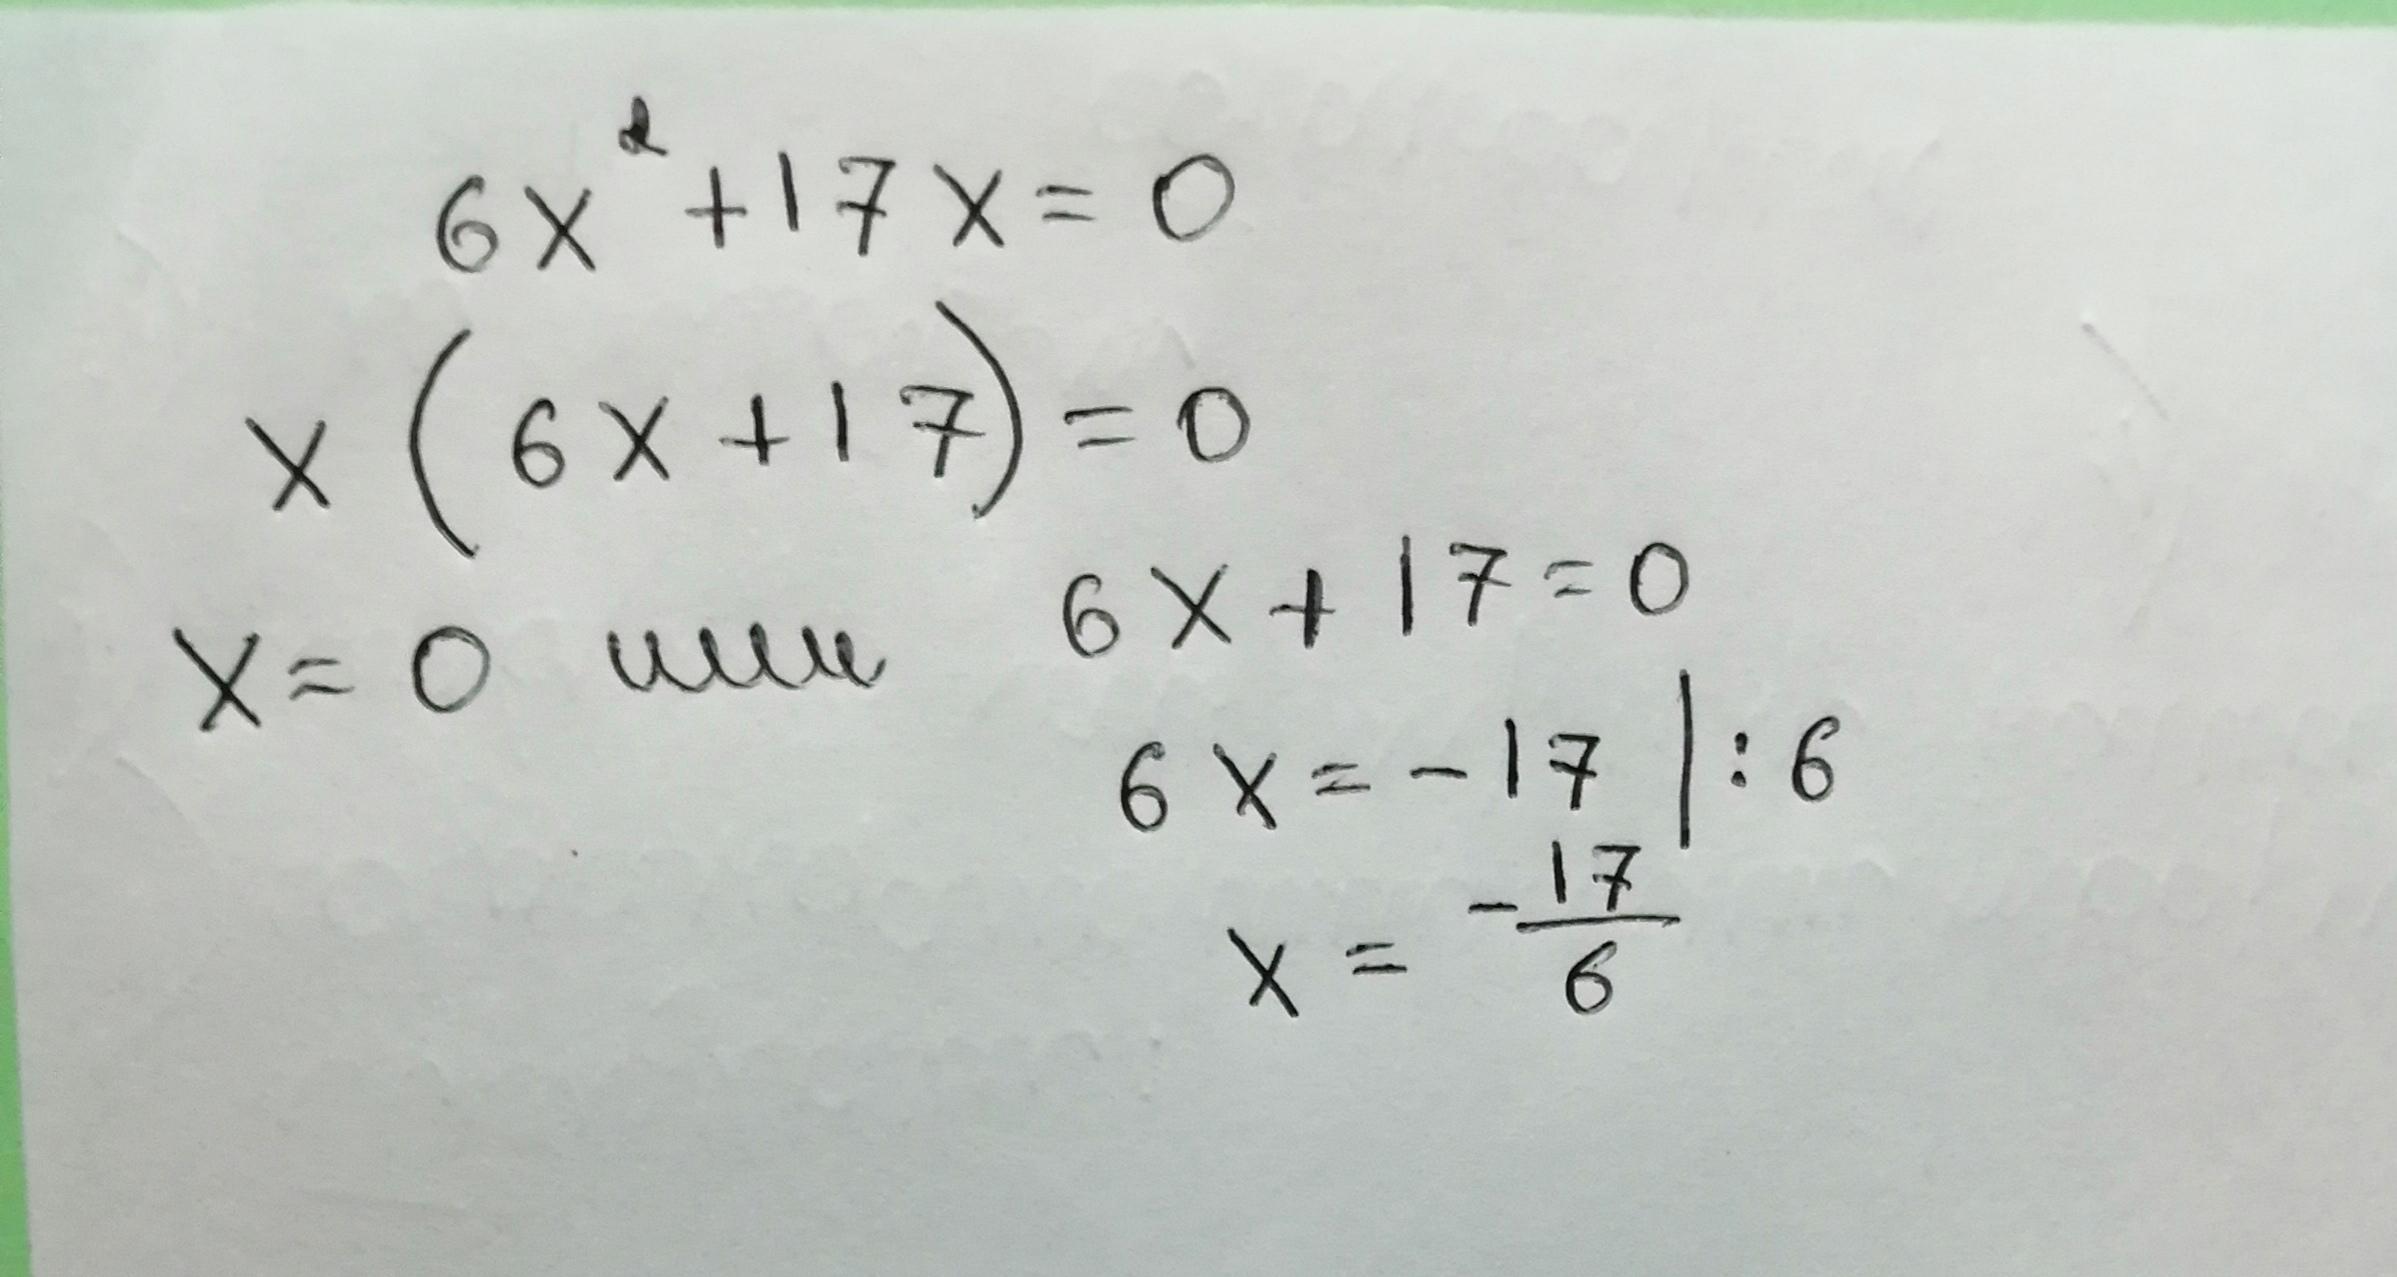 6x² + 17x = 0
x (6x + 17) = 0
x = 0 или 6x + 17 = 0
6x = -17 | : 6
x = -17/6